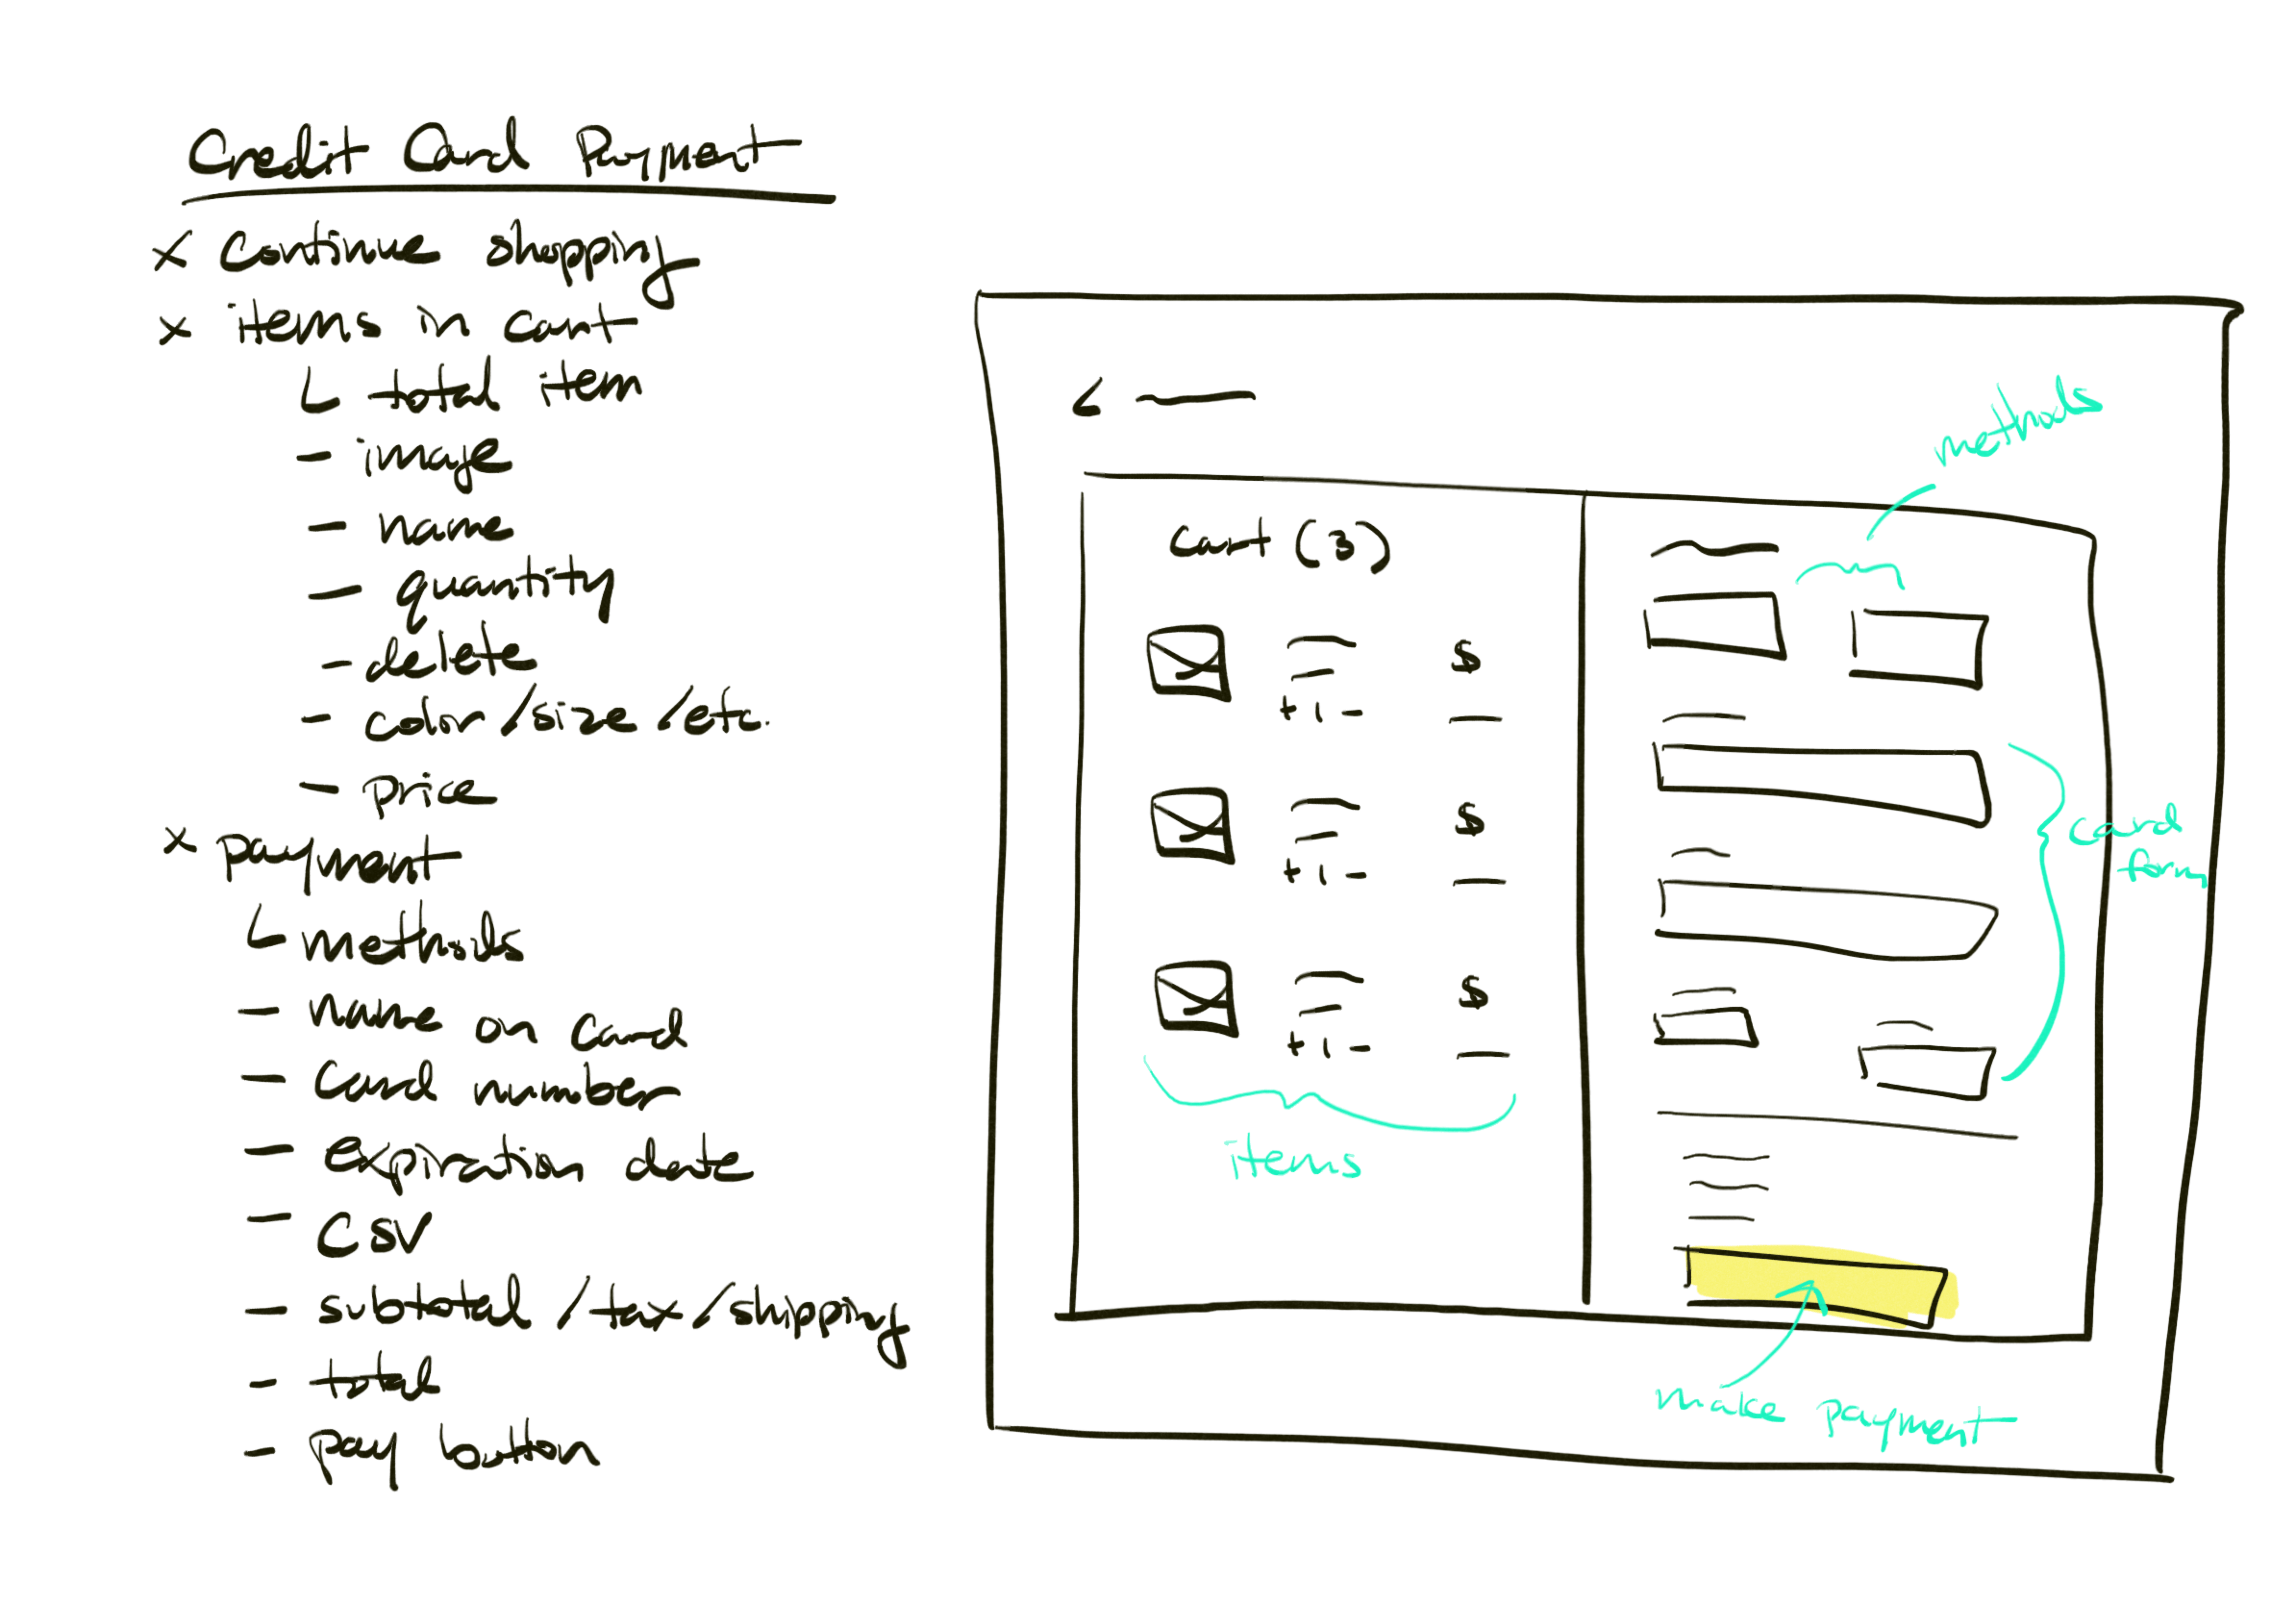 Credit Card Payment
x Continue shopping
x items in cart
└ total item
- image
- name
- quantity
- delete
- color/size/etc.
- price
x payment
└ methods
- name on card
- card number
- expiration date
- CSV
- subtotal/tax/shipping
- total
- pay button
<
methods
cart (3)
$
+ 1 -
$
+ 1 -
$
+ 1 -
items
card
form
make payment